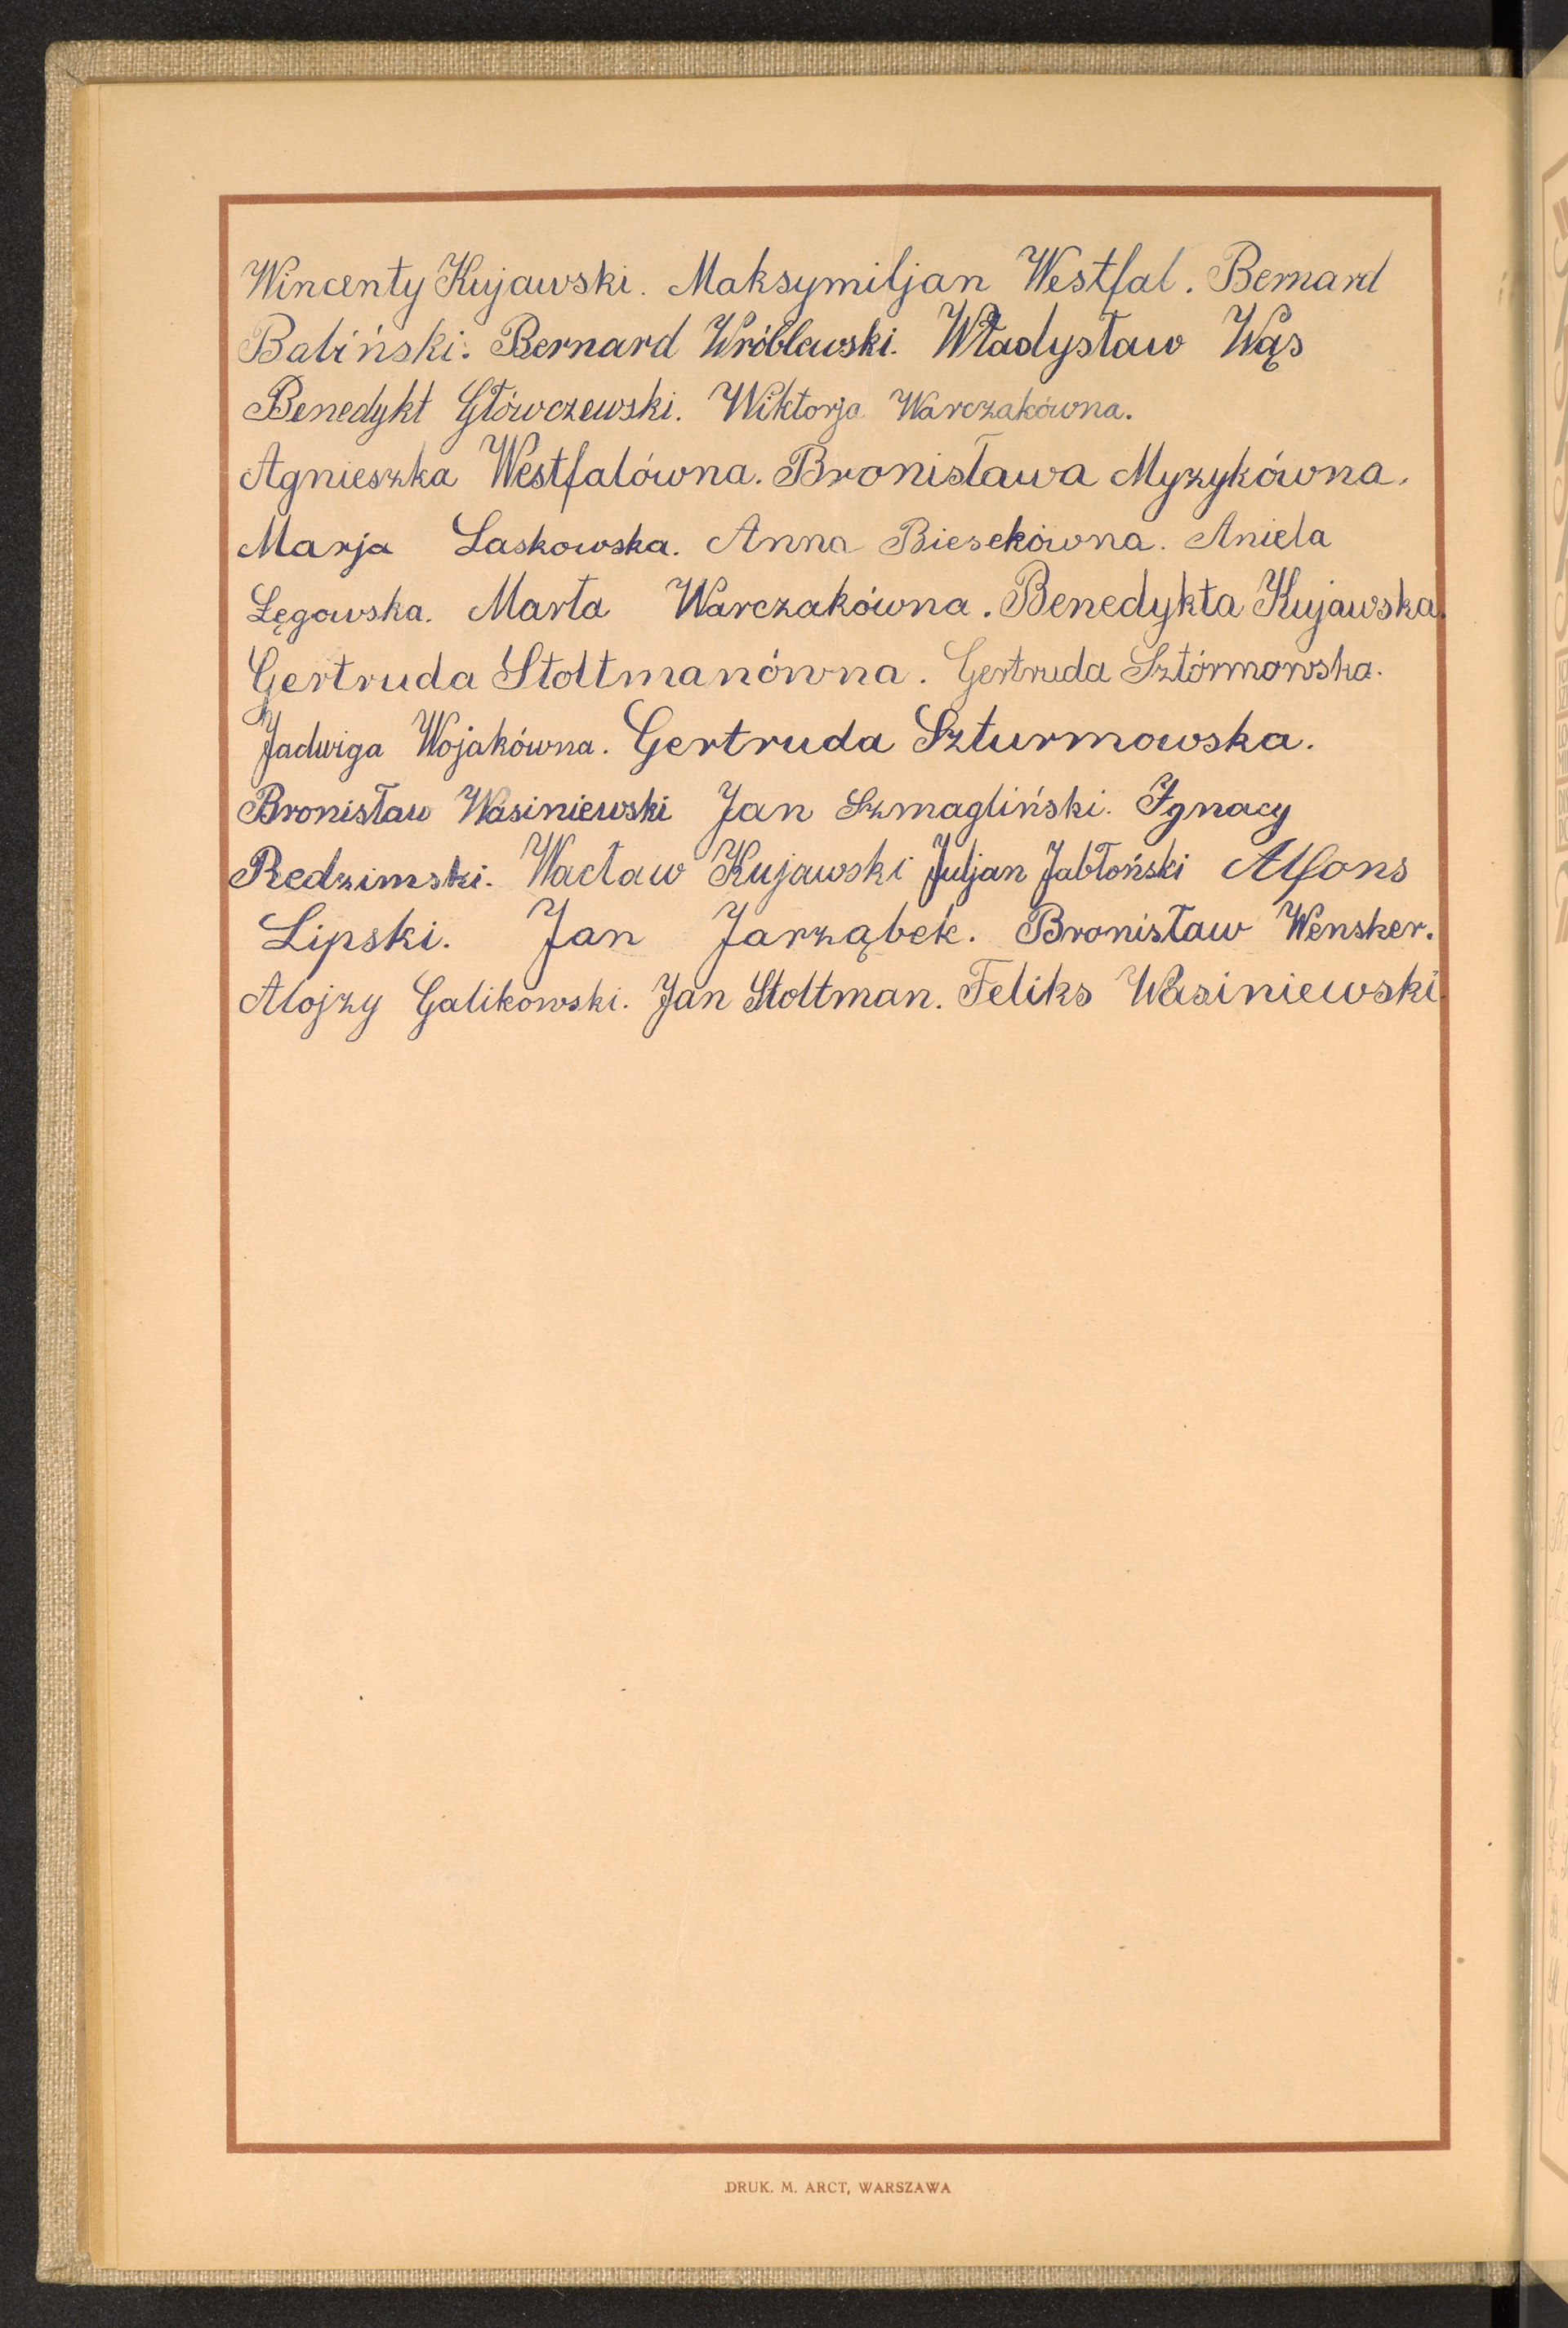 Wincenty Kujawski. Maksymiljan Westfal. Bernard
Babiński. Bernard Wróblewski. Władysław Wąs
Benedykt Główczewski. Wiktorja Warczakówna.
Agnieszka Westfalówna. Bronisława Myzykówna.
Marja Laskowska. Anna Biesekówna. Aniela
Łęgowska. Marta Warczakówna. Benedykta Kujawska.
Gertruda Stoltmanówna. Gertruda Sztórmowska.
Jadwiga Wojakówna. Gertruda Szturmowska.
Bronisław Waśiniewski Jan Szmagliński. Ignacy
Redzimski. Wacław Kujawski Juljan Jabłoński Alfons
Lipski. Jan Jarząbek. Bronisław Wensker.
Alojzy Galikowski. Jan Stoltman. Feliks Wasiniewski.
DRUK. M. ARCT, WARSZAWA